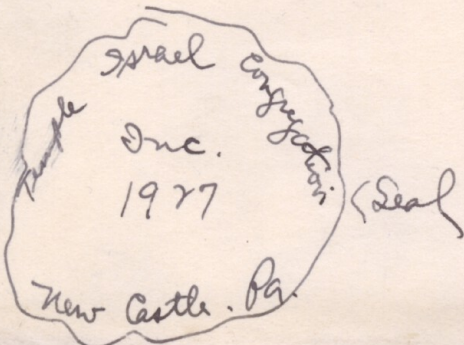 Temple Israel Congregation
Inc.
1927
New Castle. Pa.
(Seal)